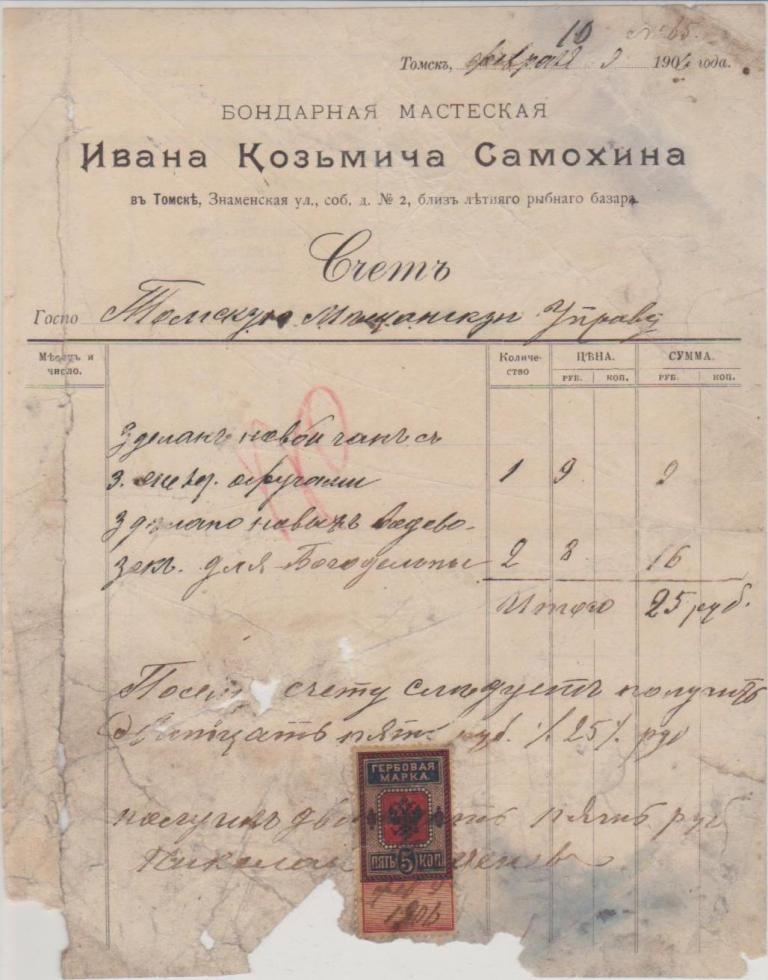 10 № 65.
Томскъ, февраля 9 1906 года.
БОНДАРНАЯ МАСТЕСКАЯ
Ивана Козьмича Самохина
въ Томскѣ, Знаменская ул., соб. д. № 2, близъ лѣтняго рыбнаго базара.
Счетъ
Госпо Томскую Мещанскую Управу
Мѣсяцъ и число. Количество ЦѢНА. СУММА.
РУБ. КОП. РУБ. КОП.
Зделанъ новой чанъ съ
3. обручами 1 9 9
Зделано новыхъ водово-
зекъ для Богодельны 2 8 16
Итого 25 руб.
Посему счету следуетъ получить
Двадцать пять руб. % 25 % руб
ГЕРБОВАЯ
МАРКА
получилъ пять руб
Николай
ПЯТЬ 5 КОП.
фев 9
1906